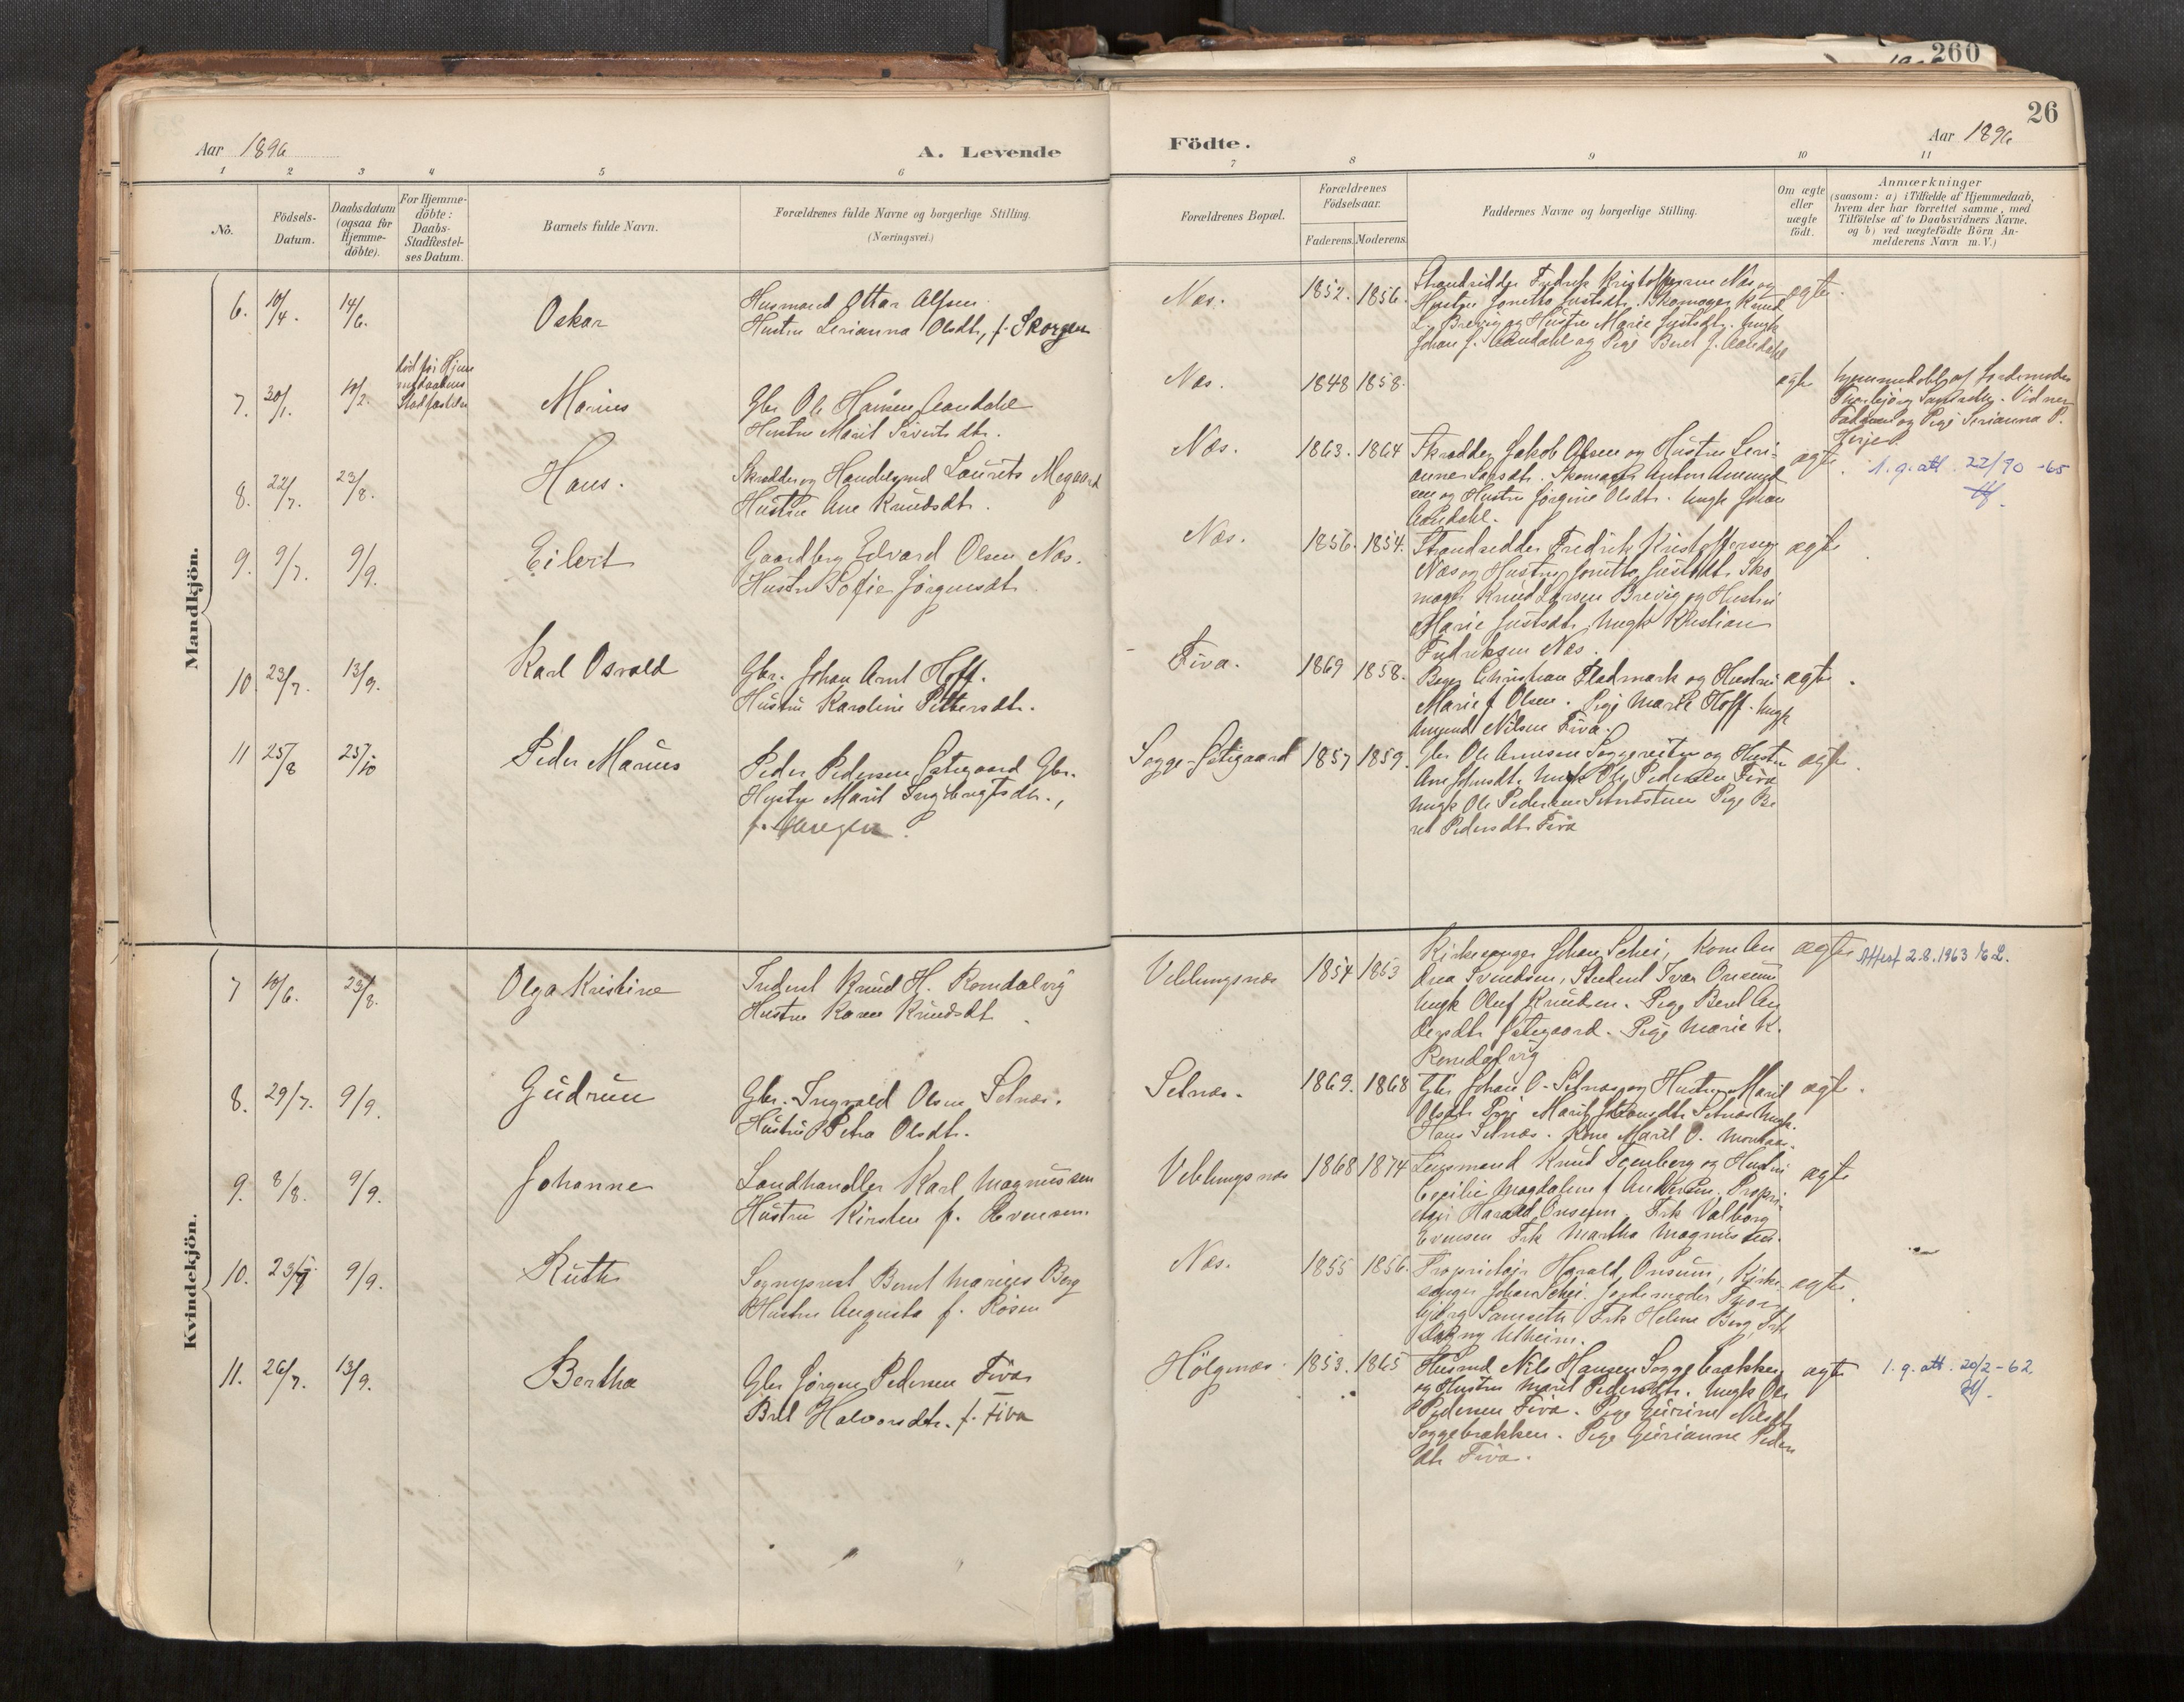 260
26
Aar 1896
A. Levende
Födte.
Aar 1896
1 2 3 4 5 6 7 8 9 10 11
No.
Födsels-Datum.
Daabsdatum (ogsaa for Hjemme-döbte).
For Hjemme-döbte: Daabs-Stadfæstel-ses Datum.
Barnets fulde Navn.
Forældrenes fulde Navne og borgerlige Stilling.
(Næringsvei.)
Forældrenes Bopæl.
Forældrenes Födselsaar.
Faderens. Moderens.
Faddernes Navne og borgerlige Stilling.
Om ægte eller uægte födt.
Anmærkninger
(saasom: a) i Tilfælde af Hjemmedaab,
hvem der har forrettet samme, med
Tilföielse af to Daabsvidners Navne.
og b) ved uægtefödte Börn An-
melderens Navn m. V.)
Mandkjön.
6. 10/4. 14/6. Oskar
Husmand Ottar Alfsen
Hustru Serianna Olsdtr, f. Skorgen
Næs. 1852. 1856.
Strandsidder Fredrik Kristoffersen Næs og
Hustru Jonetta Justsdtr. Skomager Knud
L. Brevig og Hustru Marie Justsdtr. Ungk
Johan J. Aandahl og Pige Beret J. Aandahl
ægte.
7. 30/1. 10/2.
död för Hjem
medaabens
Stadfæstelse
Marius
Gbr Ole Hansen Aandahl
Hustru Marit Sivertsdtr.
Næs. 1848 1858.
ægte
hjemmedöbt af Jordemoder
Thorbjörg Samseth. Vidner
Faderen og Pige Serianna P.
Herje.
8. 22/7. 23/8. Hans.
Skrædder og Handelsmd Laurits Megaard
Hustru Ane Knudsdtr.
Næs. 1863. 1864
Skrædder Jakob Olsen og Hustru Seri-
anne Larsdtr. Skomager Anton Amund
sen og Hustru Jörgine Olsdtr. Ungk Johan
Aandahl.
ægte.
1. g. att. 22/90 -65
9. 9/7. 9/9. Eilert
Gaardbrg Edvard Olsen Næs.
Hustru Sofie Jörgensdtr
Næs. 1856. 1854.
Strandsidder Fredrik Kristoffersen
Næs og Hustru Jonetta Justsdtr. Sko
mager Knud Larsen Brevig og Hustru
Marie Justsdtr. Ungk Kristian
Fredriksen Næs.
ægte
10. 23/7. 13/9. Karl Osvald
Gbr. Johan Arnt Hoff.
Hustru Karoline Pettersdtr.
Fiva. 1869 1858.
Bager Christian Fladmark og Hustru
Marie f Olsen. Pige Marie Hoff. Ungk
Amund Nilsen Fiva.
ægte.
11 25/8 25/10 Peder Marius
Peder Pedersen Östigaard Gbr.
Hustru Marit Ingebrigtsdtr.,
Sogge-Östigaard 1857 1859.
Gbr Ole Arnesen Soggereiten og Hustru
Ane Johnsdtr. Ungk Ole Pedersen Fiva
Ungk Ole Pedersen Setnæstuen Pige Be
ret Pedersdtr Fiva
ægte.
Kvindekjön.
7 10/6. 23/8. Olga Kristine
Intend Knud H. Romdalvig
Hustru Karen Knudsdtr
Veblungsnæs 1854 1853
Kirkesanger Johan Schei, Kone An
drea Svendsen, Student Ivar Onsum
Ungk Oluf Knudsen. Pige Beret An
dersdtr Östigaard. Pige Marie K.
Romdalvig
ægte
Attest 2.8.1963
8. 29/7. 9/9. Gudrun
Gbr. Ingvald Olsen Setnæs.
Hustru Petra Olsdtr.
Setnæs. 1869. 1868
Gbr Johan O. Setnæs og Hustru Marit
Olsdtr Pige Marit Johansdtr Setnæs Ungk.
Hans Setnæs. Kone Marit O. Monsaas.
ægte.
9. 8/8. 9/9. Johanne
Landhandler Karl Magnussen
Hustru Kirsten f. Evensen.
Veblungsnæs 1868 1874
Lensmand Knud Svenberg og Hustru
Cecilie Magdalene f Andersen. Propri-
etær Harald Onsum. Frk Valborg
Evensen Frk Martha Magnussen.
ægte
10. 23/7 9/9. Ruth
Sogneprest Bernt Marius Berg
Hustru Augusta f. Rosen
Næs. 1855 1856.
Proprietær Harald Onsum, Kirke-
sanger Johan Schei. Jordemoder Thor
björg Samseth. Frk Helene Berg, Frk
Dagny Utheim.
ægte.
11. 26/7. 13/9. Bertha
Gbr Jörgen Pedersen Fiva
Brit Halvorsdtr. f. Fiva
Hölgenæs. 1853. 1865
Husmd Nils Hansen Soggebrækken
og Hustru Marit Pedersdtr. Ungk Ole
Pedersen Fiva. Pige Gurine Nilsdt
Soggebrækken. Pige Gurianne Peders
dtr Fiva.
ægte
1. g. att. 20/2-62.